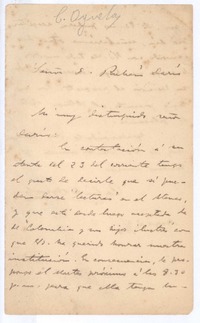 C. Oyuela
Señor D. Rubén Darío
Mi muy distinguido
Darío:
En contestación á su
atenta del 23 del corriente tengo
el gusto de decirle que sí pue-
den darse "lecturas" en el Ateneo,
y que está desde luego aceptada la
de "Colombia y sus hijos ilustres" con
que Vd. ha querido honrar nuestra
institución. En consecuencia, le pro-
pongo el martes próximo á las 8.30
p.m. para que ella tenga lu-